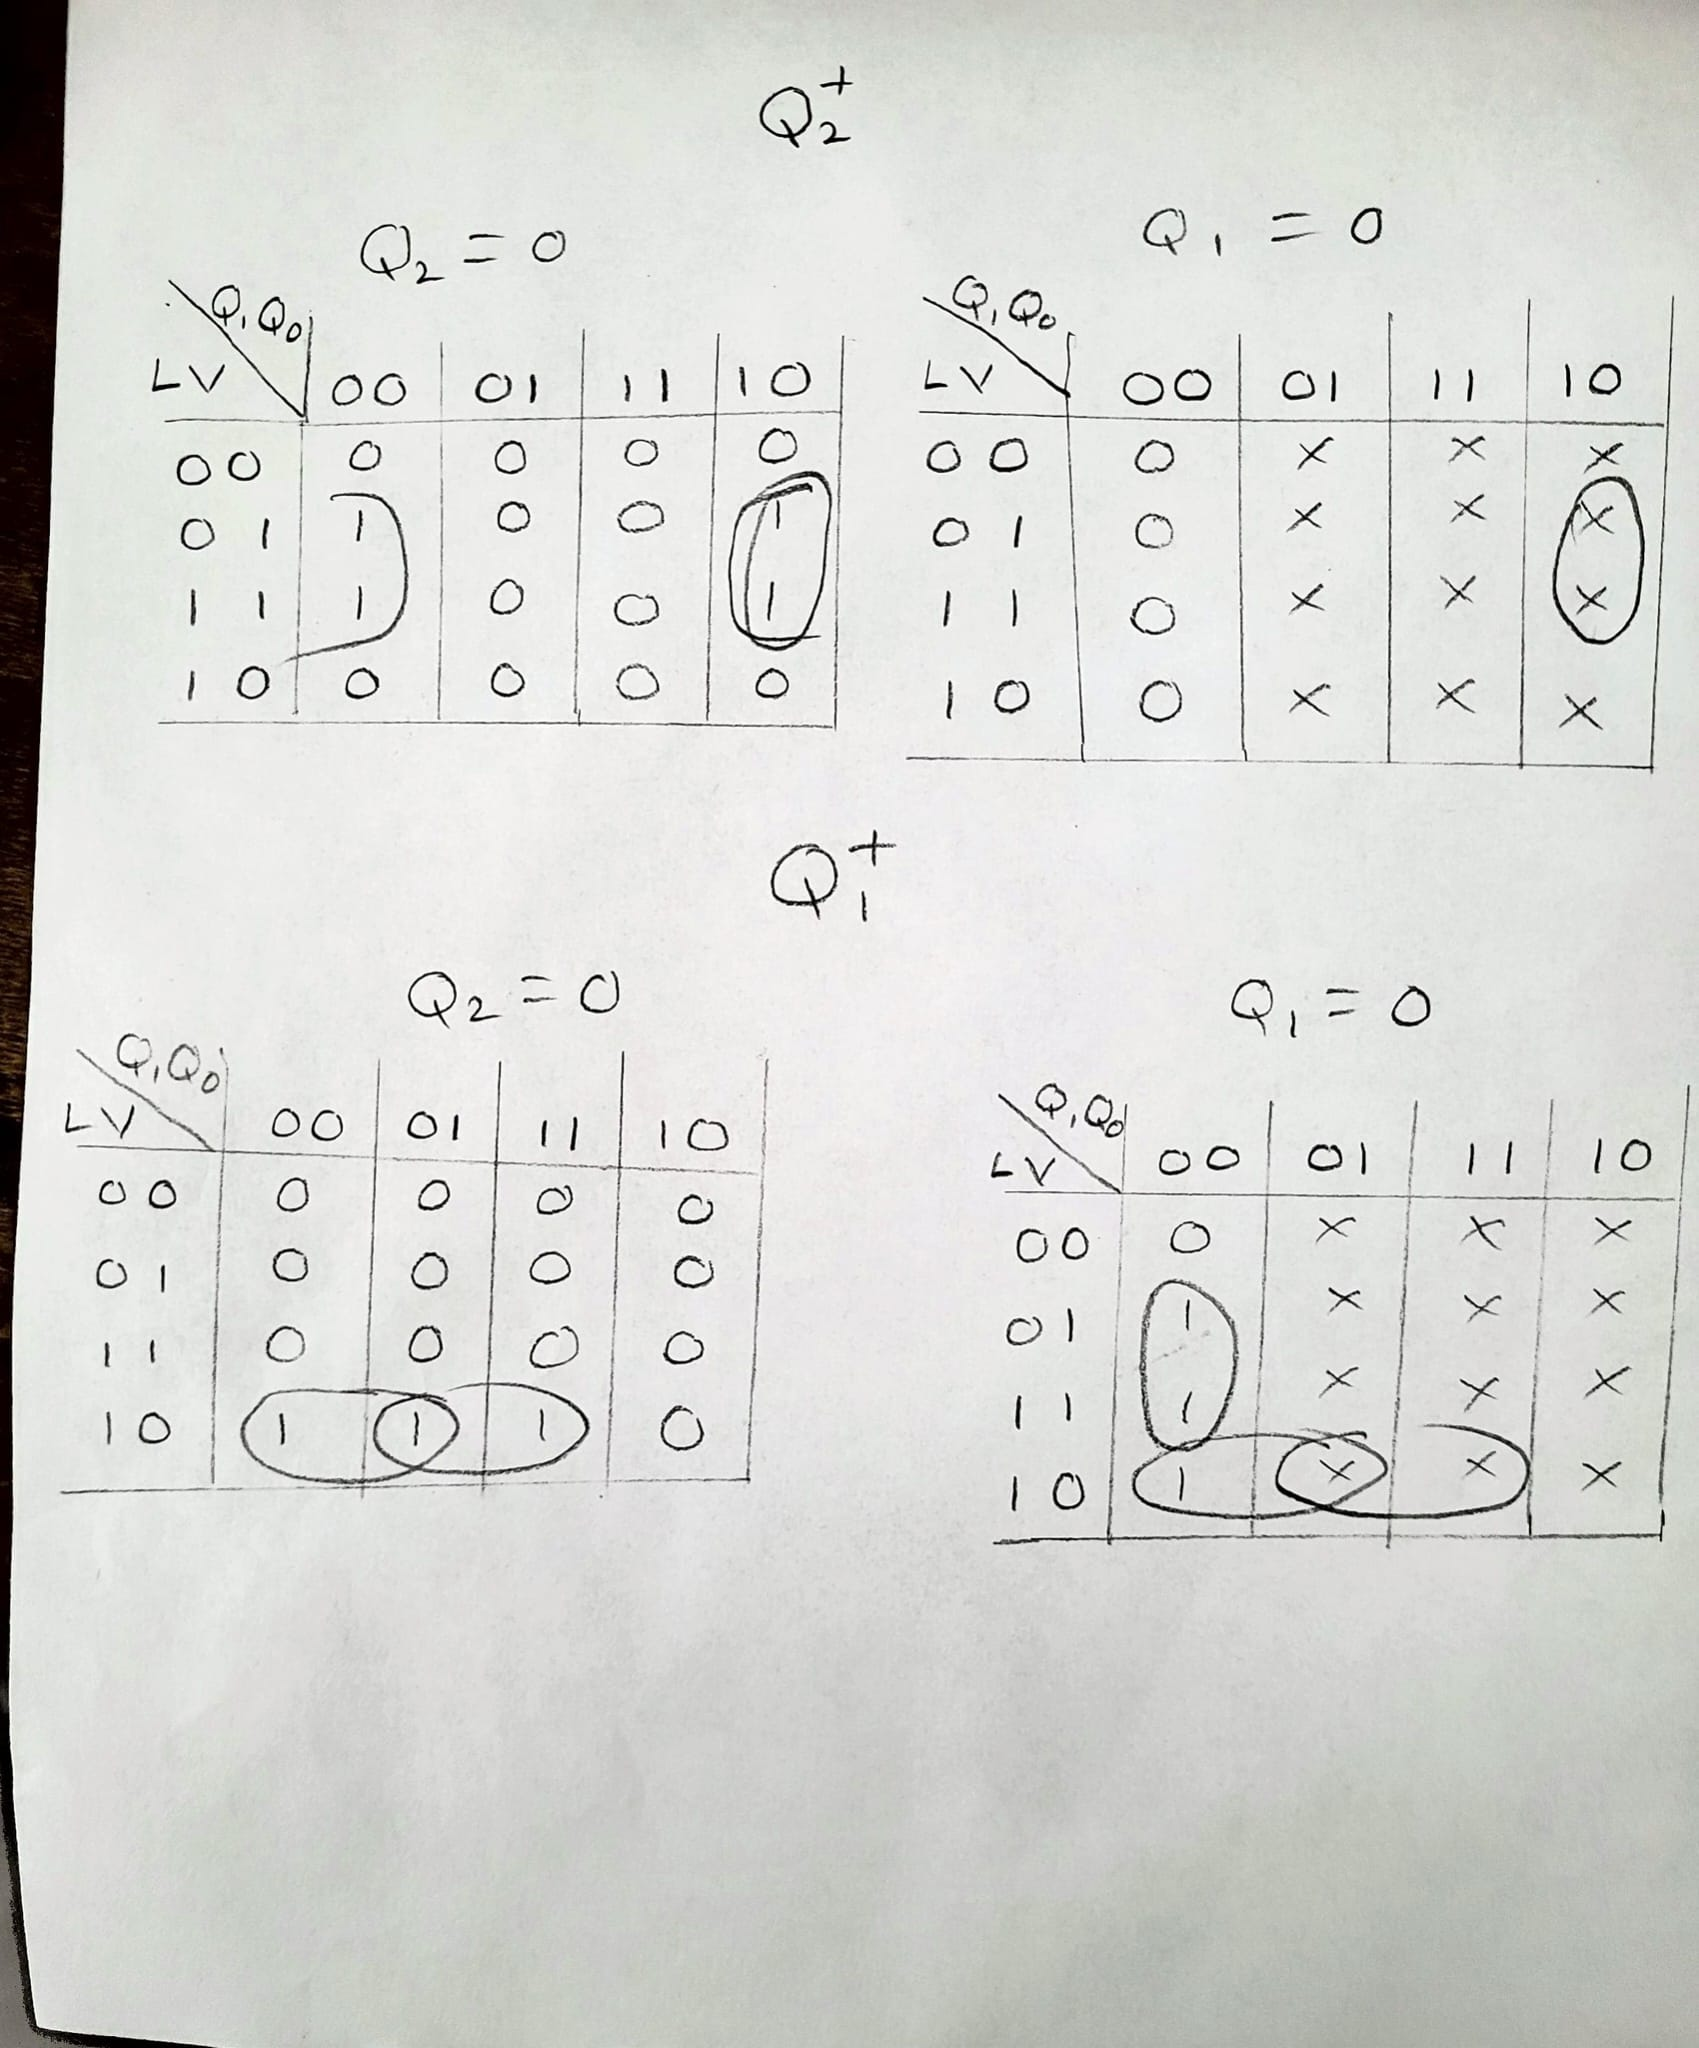 Q₂⁺
Q₂ = 0
Q₁Q₀
LV 00 01 11 10
00 0 0 0 0
01 1 0 0 1
11 1 0 0 1
10 0 0 0 0
Q₁ = 0
Q₁Q₀
LV 00 01 11 10
00 0 x x x
01 0 x x x
11 0 x x x
10 0 x x x
Q₁⁺
Q₂ = 0
Q₁Q₀
LV 00 01 11 10
00 0 0 0 0
01 0 0 0 0
11 0 0 0 0
10 1 1 1 0
Q₁ = 0
Q₁Q₀
LV 00 01 11 10
00 0 x x x
01 1 x x x
11 1 x x x
10 1 x x x